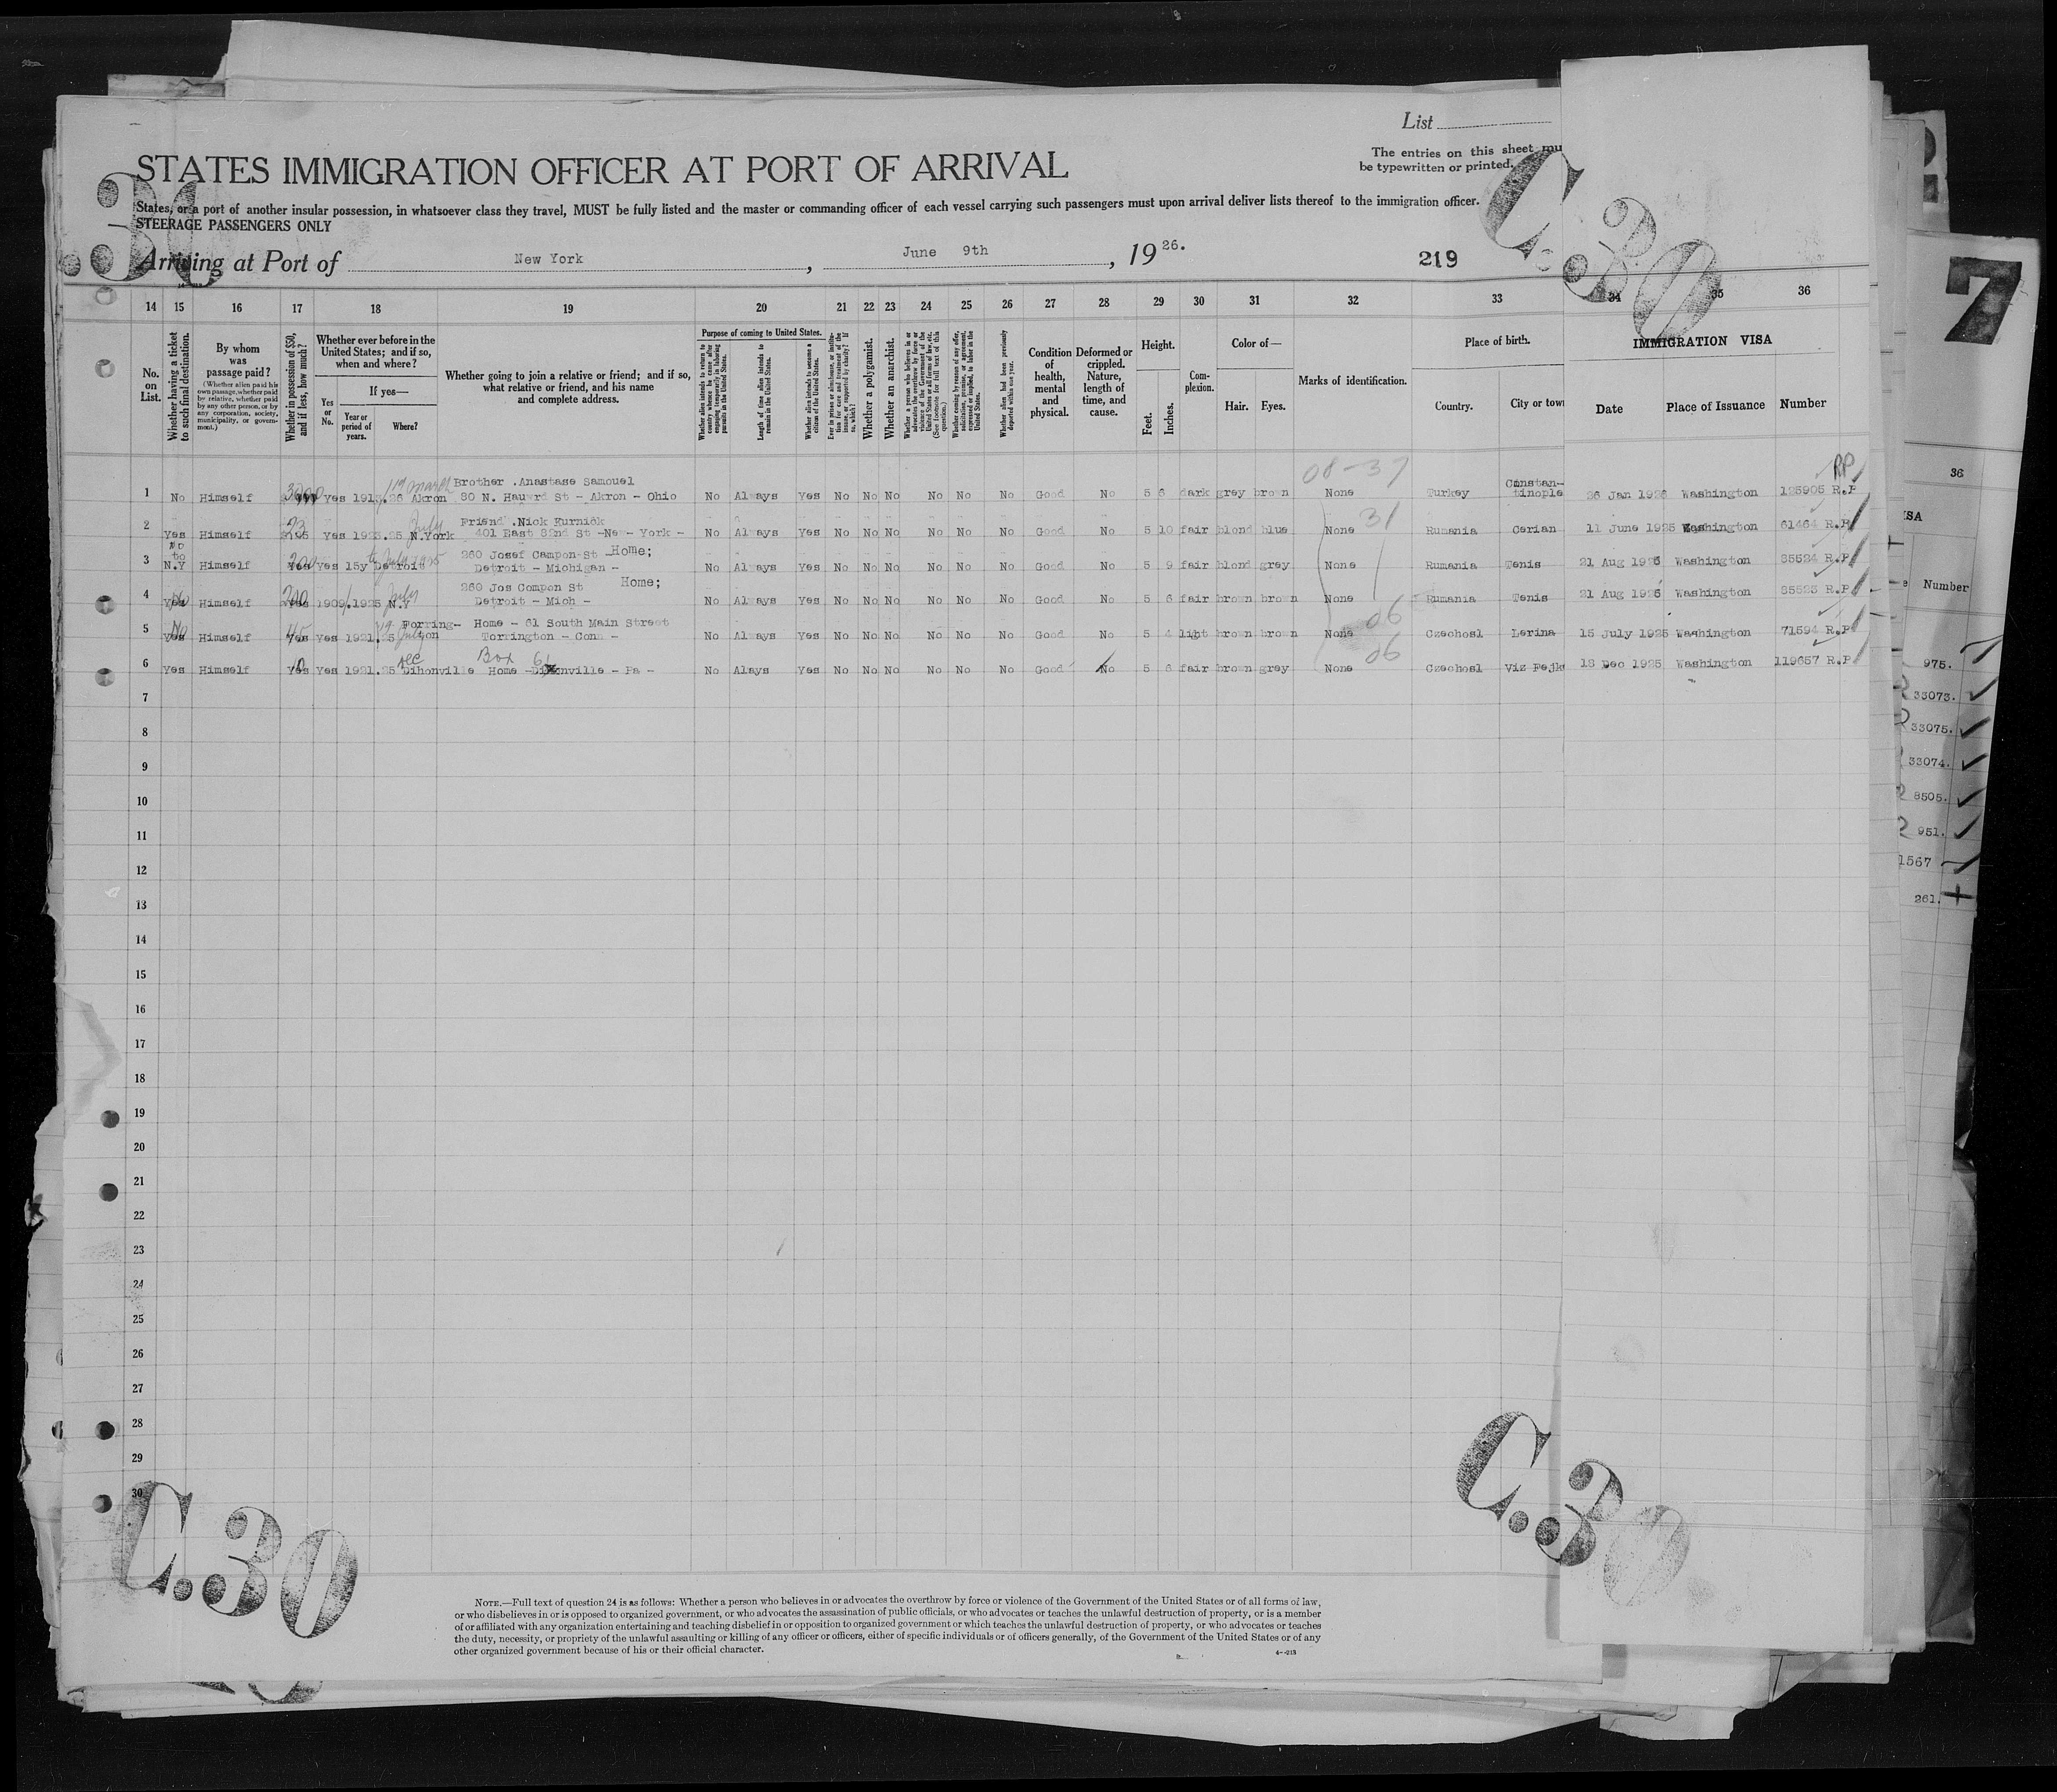 List
The entries on this sheet mu
be typewritten or printed.
STATES IMMIGRATION OFFICER AT PORT OF ARRIVAL
States, or a port of another insular possession, in whatsoever class they travel, MUST be fully listed and the master or commanding officer of each vessel carrying such passengers must upon arrival deliver lists thereof to the immigration officer.
STEERAGE PASSENGERS ONLY
Arriving at Port of New York, June 9th, 1926.
219
C.30
14 15 16 17 18 19 20 21 22 23 24 25 26 27 28 29 30 31 32 33 34 35 36
No. on List.
Whether having a ticket to such final destination.
By whom was passage paid?
(Whether alien paid his own passage, whether paid by relative, whether paid by any other person, or by any corporation, society, municipality, or government.)
Whether in possession of $50, and if less, how much?
Whether ever before in the United States; and if so, when and where?
If yes—
Yes or No.
Year or period of years.
Where?
Whether going to join a relative or friend; and if so, what relative or friend, and his name and complete address.
Purpose of coming to United States.
Whether alien intends to return to country whence he came after engaging temporarily in laboring pursuits in the United States.
Length of time alien intends to remain in the United States.
Whether alien intends to become a citizen of the United States.
Ever in prison or almshouse, or institution for care and treatment of the insane, or supported by charity? If so, which?
Whether a polygamist.
Whether an anarchist.
Whether a person who believes in or advocates the overthrow by force or violence of the Government of the United States or all forms of law, etc. (See footnote for full text of this question.)
Whether coming by reason of any offer, solicitation, promise, or agreement, expressed or implied, to labor in the United States.
Whether alien had been previously deported within one year.
Condition of health, mental and physical.
Deformed or crippled. Nature, length of time, and cause.
Height.
Feet. Inches.
Complexion.
Color of—
Hair. Eyes.
Marks of identification.
Place of birth.
Country. City or town
IMMIGRATION VISA
Date Place of Issuance Number
08-37
RP
1 No Himself Yes 1913.26 Akron Brother .Anastase Samouel
80 N. Hauwrd St - Akron - Ohio No Always Yes No No No No No No Good No 5 6 dark grey brown None Turkey Constan-
tinople 26 Jan 1926 Washington 125905 R.P
2 Yes Himself 23 Yes 1923.25 N.York July Friend .Nick Kurnick
401 East 82nd St -Ne - York - No Always Yes No No No No No No Good No 5 10 fair blond blue None 31 Rumania Cerian 11 June 1925 Washington 61464 R.P
3 No to N.Y Himself 200 Yes 15y Detroit July 1925 260 Josef Campon St -Home;
Detroit - Michigan - No Always Yes No No No No No No Good No 5 9 fair blond grey None Rumania Tenis 21 Aug 1925 Washington 85524 R.P
4 Yes Himself 200 Yes 1909/.1925 N.Y July 260 Jos Compon St Home;
Detroit - Mich - No Always Yes No No No No No No Good No 5 6 fair brown brown None Rumania Tenis 21 Aug 1925 Washington 85523 R.P
5 Yes No Himself Yes 45 Yes 1921.25 Torring-
ton July Home - 61 South Main Street
Torrington - Conn - No Always Yes No No No No No No Good No 5 4 light brown brown None 06 Czechosl Lerina 15 July 1925 Washington 71594 R.P
6 Yes Himself Yes Yes 1921.25 Dihonville Dec Box 61
Home -Dixonville - Pa - No Alays Yes No No No No No No Good No 5 6 fair brown grey None 06 Czechosl Viz Fejk 18 Dec 1925 Washington 119657 R.P
7
8
9
10
11
12
13
14
15
16
17
18
19
20
21
22
23
24
25
26
27
28
29
30
C.30
C.30
NOTE.—Full text of question 24 is as follows: Whether a person who believes in or advocates the overthrow by force or violence of the Government of the United States or of all forms of law,
or who disbelieves in or is opposed to organized government, or who advocates the assassination of public officials, or who advocates or teaches the unlawful destruction of property, or is a member
of or affiliated with any organization entertaining and teaching disbelief in or opposition to organized government or which teaches the unlawful destruction of property, or who advocates or teaches
the duty, necessity, or propriety of the unlawful assaulting or killing of any officer or officers, either of specific individuals or of officers generally, of the Government of the United States or of any
other organized government because of his or their official character.
7
36
ISA
Number
975.
33073.
33075.
33074.
8505.
951.
1567
261.